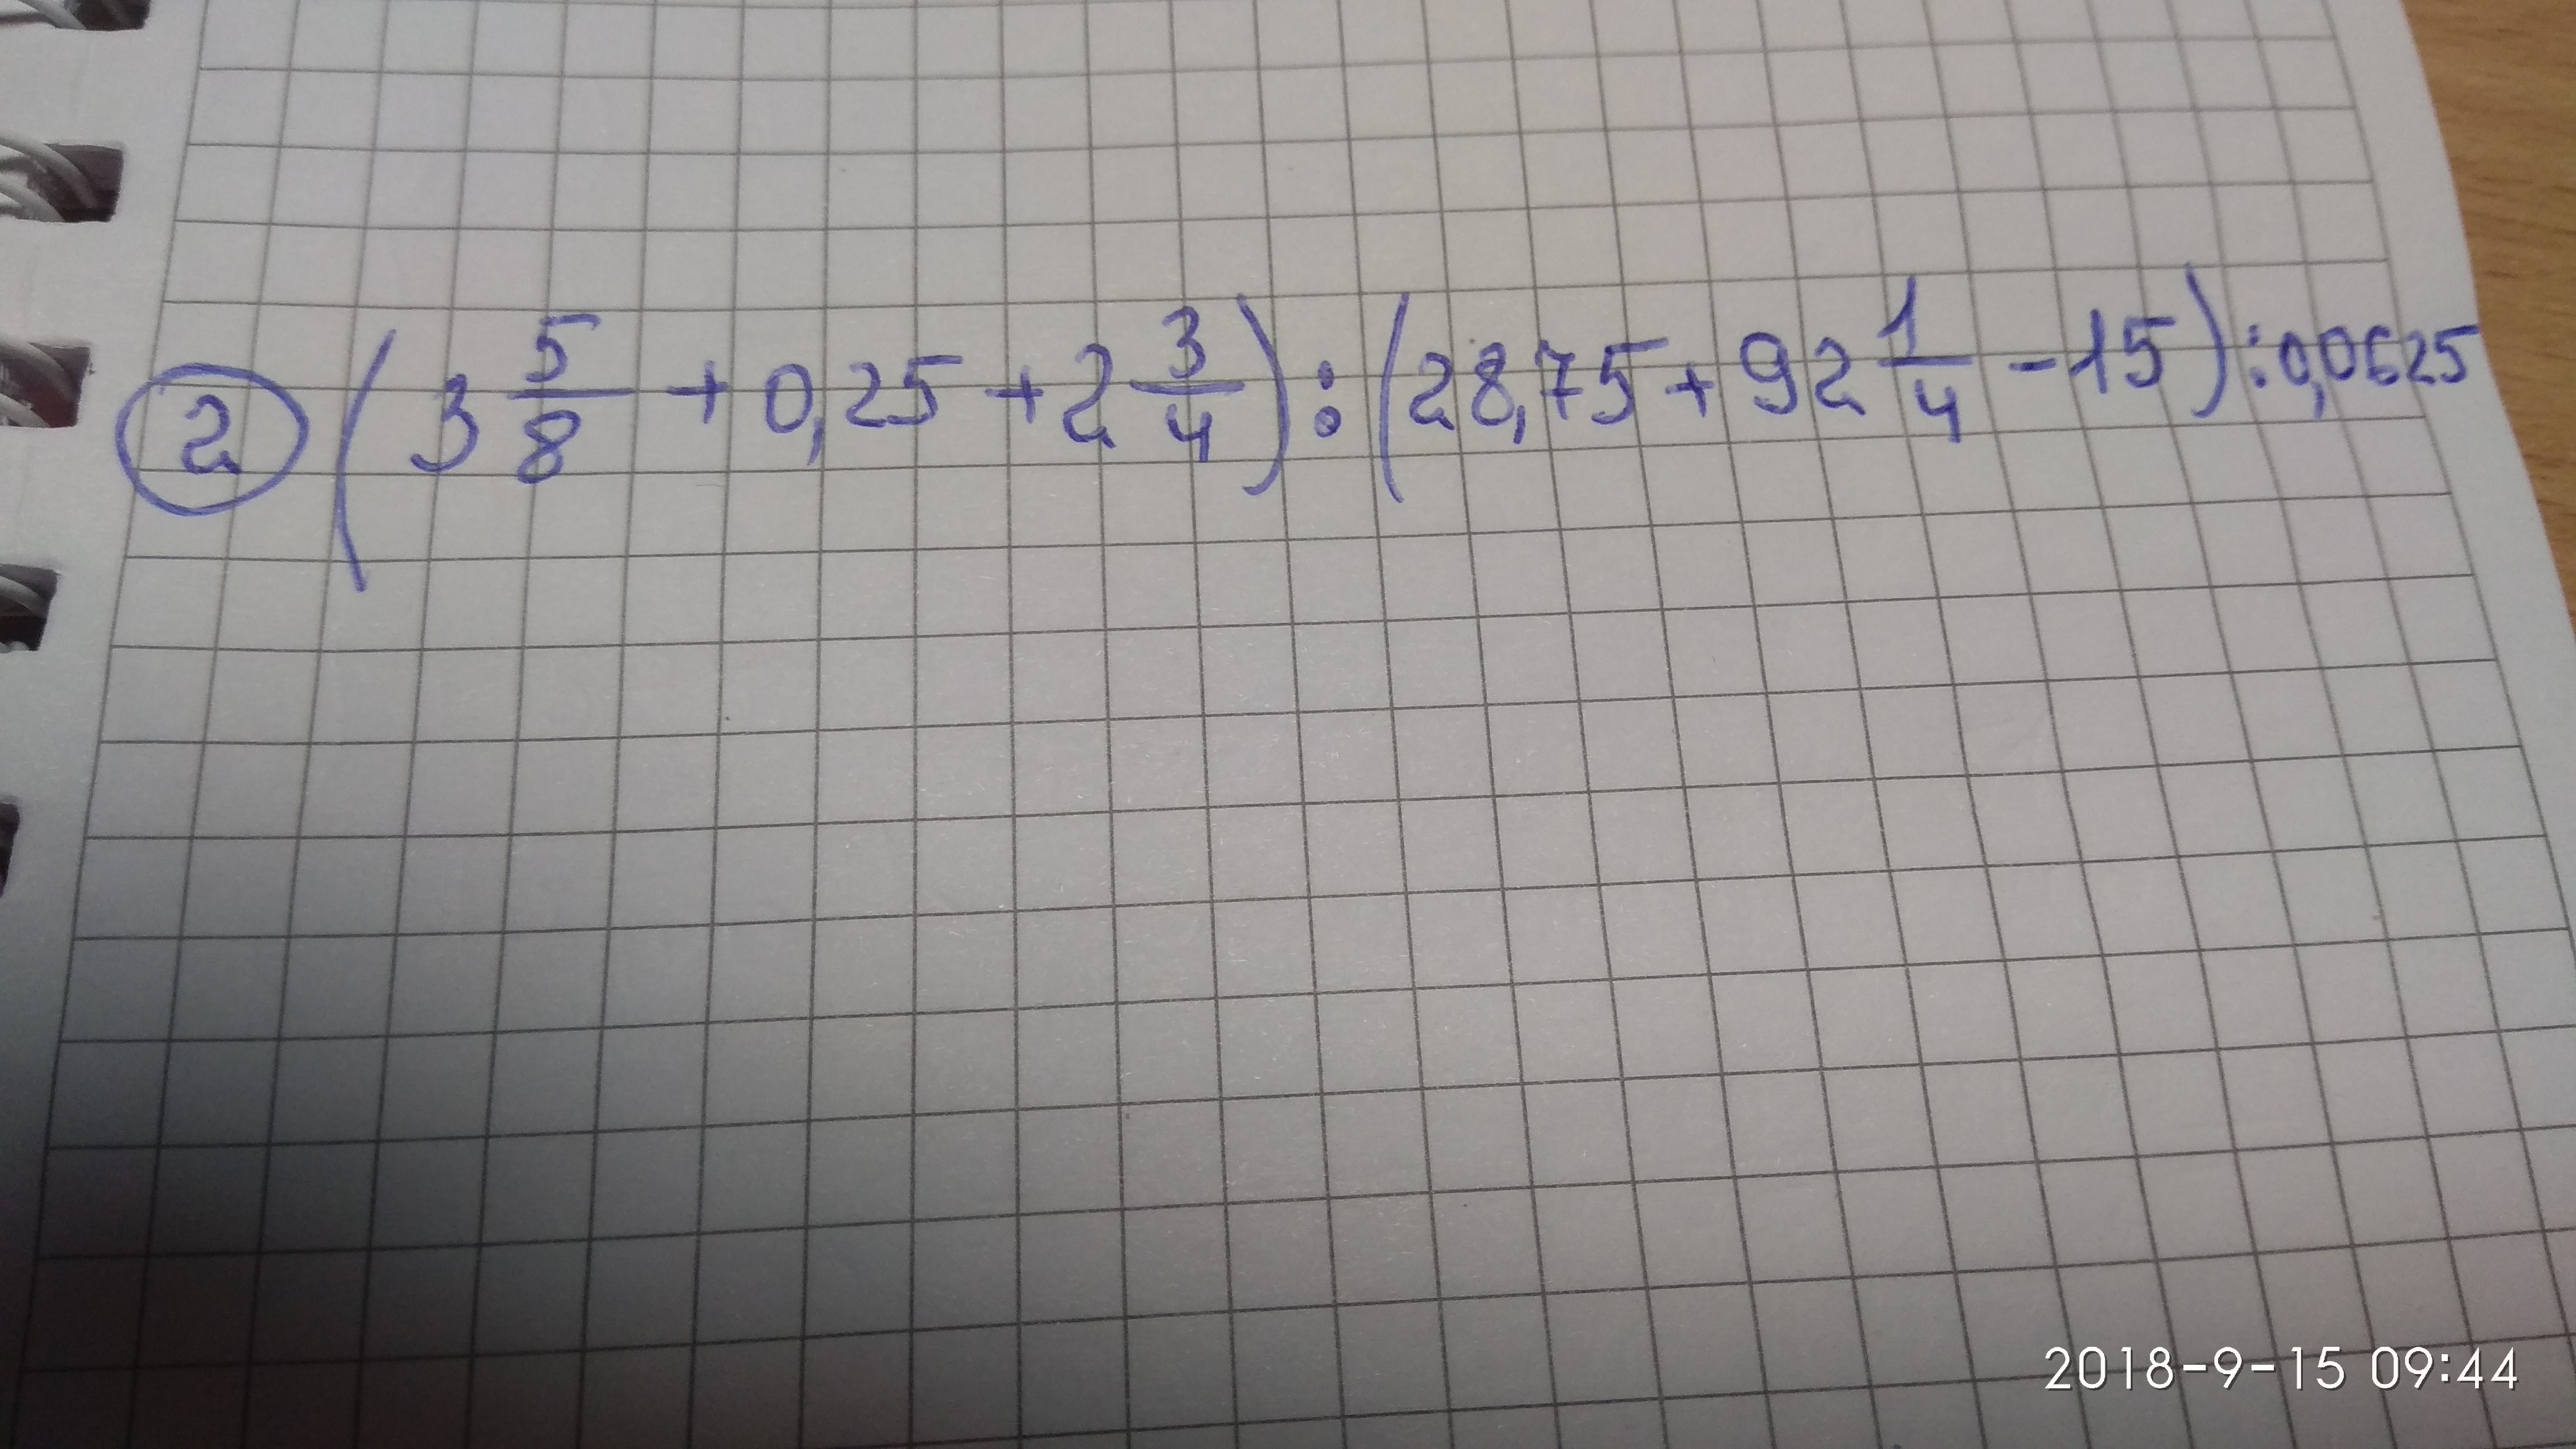 2 (3 5/8 + 0,25 + 2 3/4) : (28,75 + 92 1/4 - 15) : 0,0625
2018-9-15 09:44